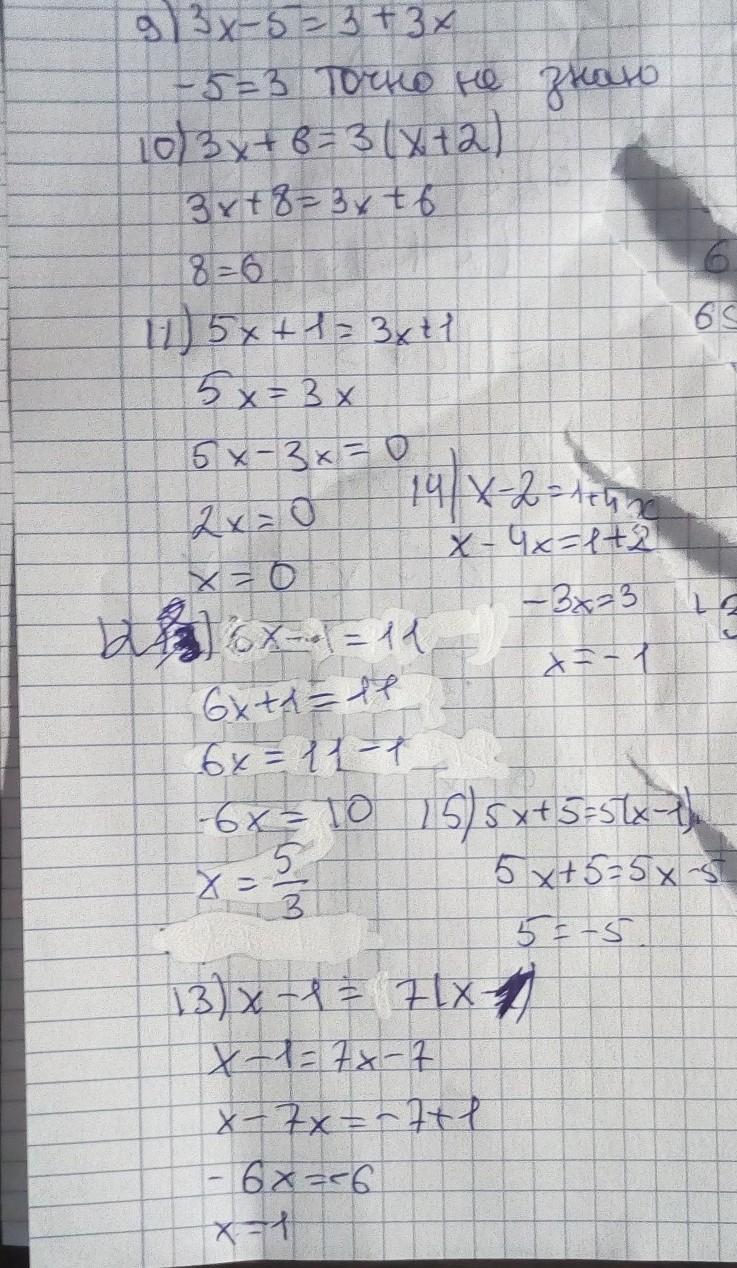 9) 3x-5=3+3x
-5=3 точно не знаю
10) 3x+8=3(x+2)
3x+8=3x+6
8=6
11) 5x+1=3x+1
5x=3x
5x-3x=0
2x=0
x=0
12) 6x-1=11
6x+1=11
6x=11-1
6x=10
x=5/3
13) x-1=7(x-1)
x-1=7x-7
x-7x=-7+1
-6x=-6
x=1
14) x-2=1+4x
x-4x=1+2
-3x=3
x=-1
15) 5x+5=5(x-1)
5x+5=5x-5
5=-5.
6